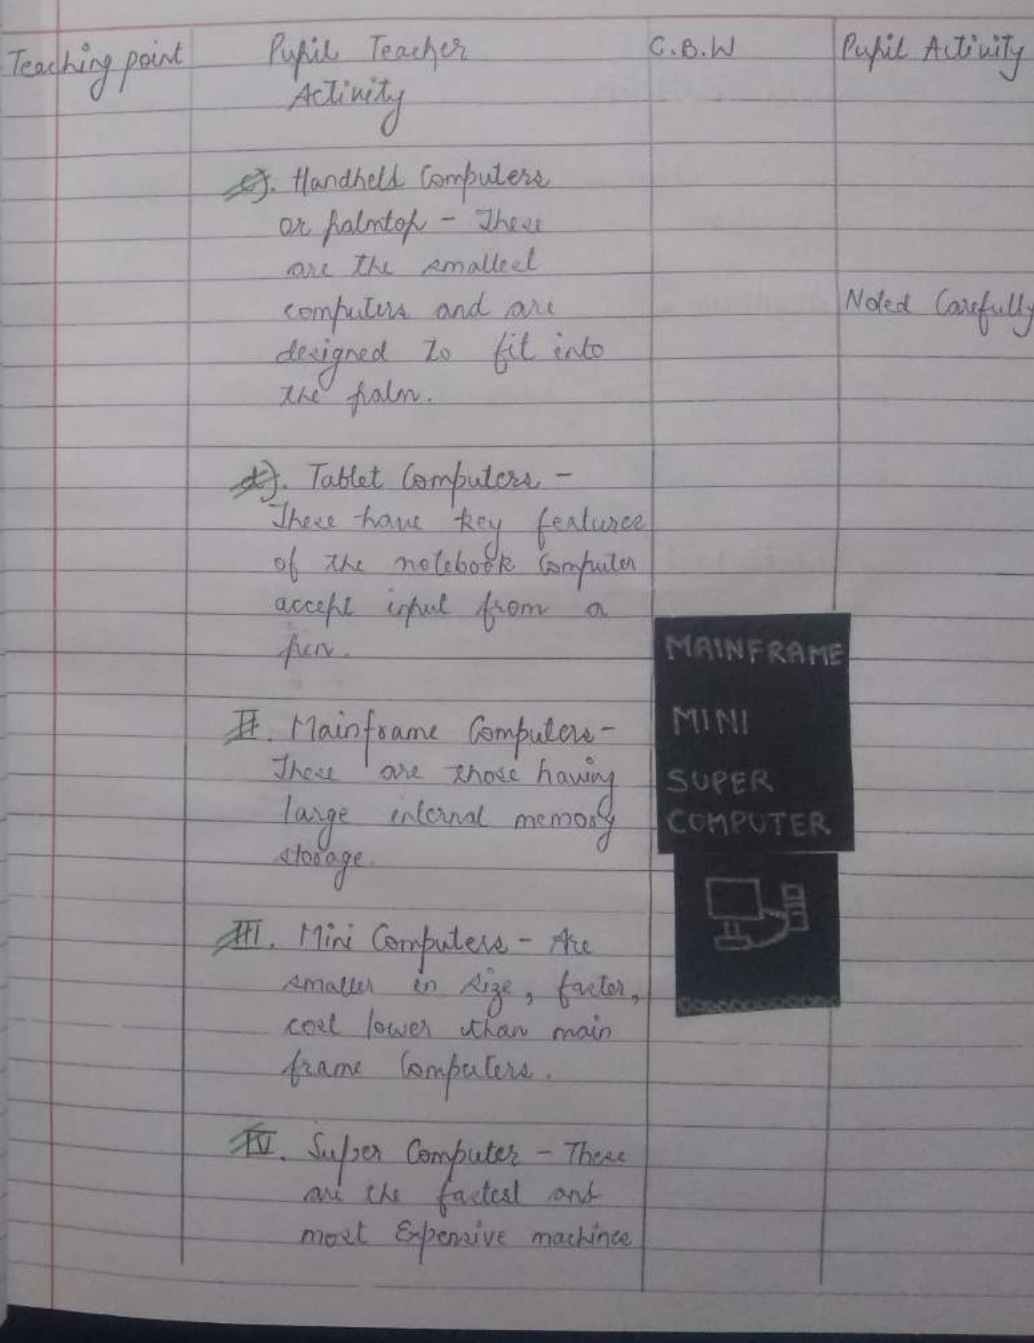 Teaching point
Pupil Teacher
Activity
C.B.W
Pupil Activity
c). Handheld Computers
or palmtop - These
are the smallest
computers and are
designed to fit into
the palm.
Noted Carefully
d). Tablet Computers -
These have key features
of the notebook Computer
accept input from a
pen.
II. Mainframe Computers -
These are those having
large internal memory
storage.
III. Mini Computers - Are
smaller in size, faster,
cost lower than main
frame Computers.
IV. Super Computer - These
are the fastest and
most Expensive machines
MAINFRAME
MINI
SUPER
COMPUTER